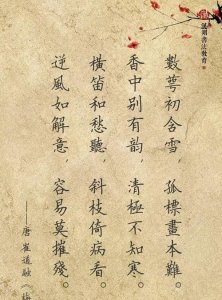 數萼初含雪，孤標畫本難。
香中別有韵，清極不知寒。
橫笛和愁聽，斜枝倚病看。
逆風如解意，容易莫摧殘。
——唐崔道融《梅